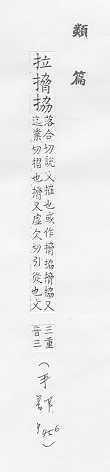 類篇
拉搚拹
落合切說文摧也或作搚拹搚拹又
迄業切摺也搚又虛欠切引從也文
三重
音三
(手 P456)